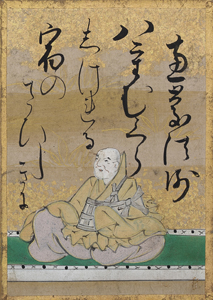 恵慶法師
八重むくら
しけれる
宿の
さひしきに